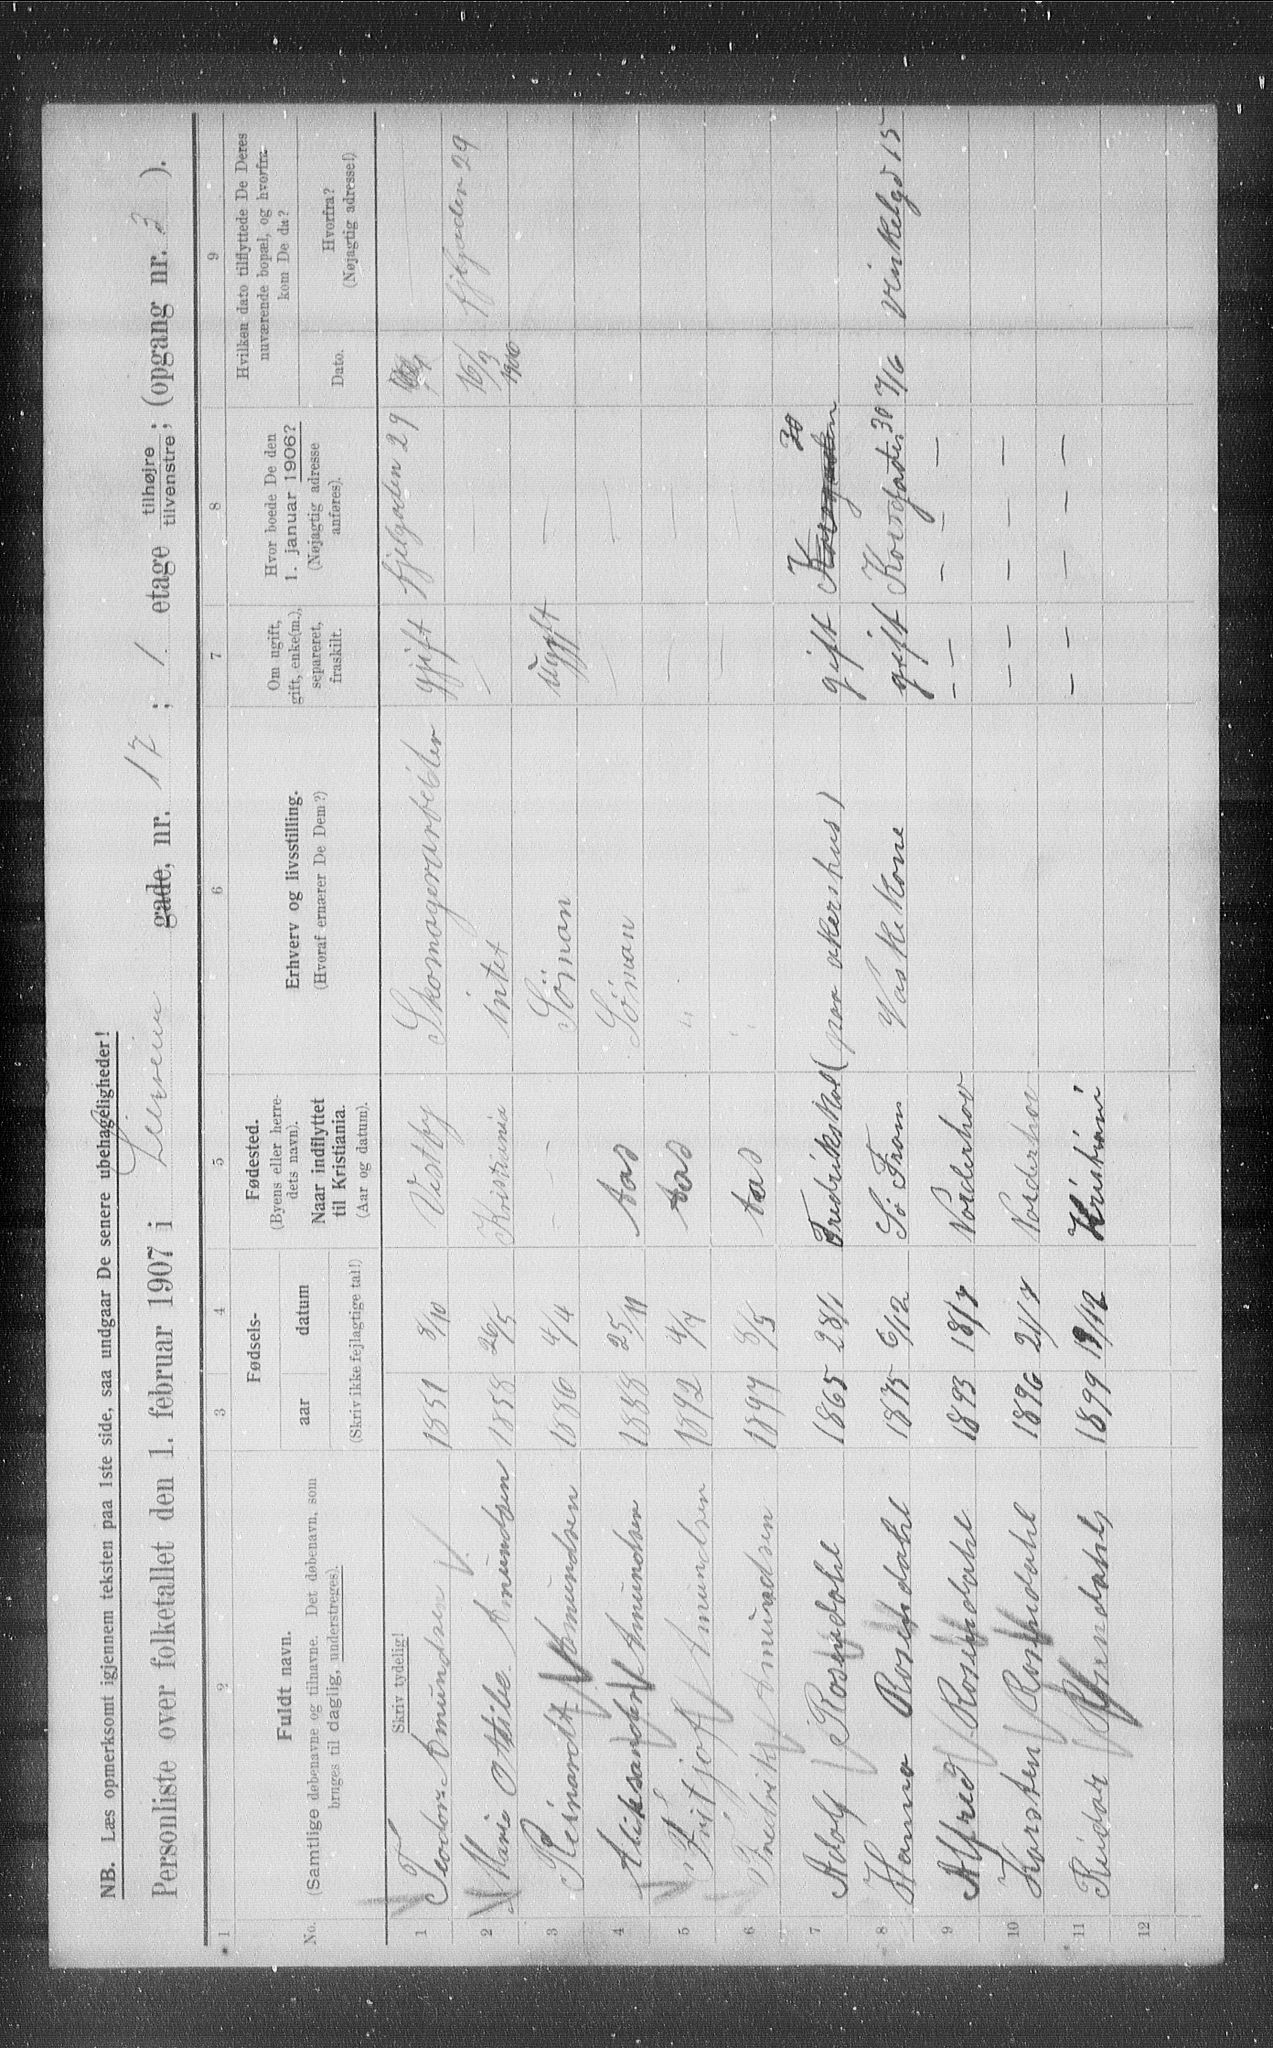 NB. Læs opmerksomt igjennem teksten paa 1ste side, saa undgaar De senere ubehageligheder!
Personliste over folketallet den 1. februar 1907 i gade, nr. 17 ; 1 etage tilhøjre tilvenstre; (opgang nr. 3 ).
1 2 3 4 5 6 7 8 9
No.
Fuldt navn.
(Samtlige døbenavne og tilnavne. Det døbenavn, som
bruges til daglig, understreges).
Fødsels-
aar datum
(Skriv ikke fejlagtige tal!)
Fødested.
(Byens eller herre-
dets navn).
Naar indflyttet
til Kristiania.
(Aar og datum).
Erhverv og livsstilling.
(Hvoraf ernærer De Dem?)
Om ugift,
gift, enke(m.),
separeret,
fraskilt.
Hvor boede De den
1. januar 1906?
(Nøjagtig adresse
anføres).
Hvilken dato tilflyttede De Deres
nuværende bopæl, og hvorfra
kom De da?
Dato.
Hvorfra?
(Nøjagtig adresse!)
Skriv tydelig!
1 Teodor Amundsen 1851 8/10 Vestby Skomagerarbeider gjift fjelgaden 29
2 Marie Othilie Amundsen 1858 26/5 Kristiania intet — — 16/9 1906 fjelgaden 29
3 Reinardt Amundsen 1886 4/4 — Söman ugift —
4 Aleksander Amundsen 1888 25/11 Aas Söman — —
5 Fritjof Amundsen 1892 4/7 Aas " — —
6 Fredrik Amundsen 1897 8/5 Aas " — —
7 Adolf Rosendahl 1865 28/1 Fredrikshal (paa akershus) gift Korsgaden 30
8 Hanna Rosendahl 1875 6/12 Sö From Vaskekone gift Korsgaden 30 7/6 vinkelgd 15
9 Alfred Rosendahl 1893 18/7 Norderhov — — — — —
10 Karsten Rosendahl 1896 21/7 Norderhov — — — — —
11 Reidar Rosendahl 1899 19/12 Kristiani — — — — —
12